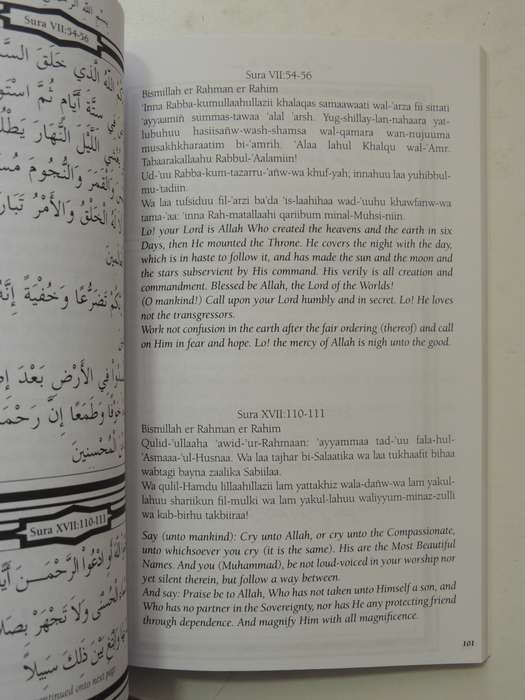 Sura VII:54-56
اللَّهُ الَّذِي خَلَقَ
سِتَّةِ أَيَّامٍ ثُمَّ
اللَّيْلَ النَّهَارَ
وَالْقَمَرَ وَالنُّجُومَ
لَهُ الْخَلْقُ وَالْأَمْرُ
تَضَرُّعًا وَخُفْيَةً إِنَّهُ
فِي الْأَرْضِ بَعْدَ
خَوْفًا وَطَمَعًا إِنَّ
الْمُحْسِنِينَ
Sura XVII:110-111
ادْعُوا الرَّحْمَـٰنَ
وَلَا تَجْهَرْ
بَيْنَ ذَٰلِكَ سَبِيلًا
continued onto next page
Sura VII:54-56
Bismillah er Rahman er Rahim
'Inna Rabba-kumullaahullazii khalaqas samaawaati wal-'arza fii sittati
'ayyaamiñ summas-tawaa 'alal 'arsh. Yug-shillay-lan-nahaara yat-
lubuhuu hasiisañw-wash-shamsa wal-qamara wan-nujuuma
musakhkharaatim bi-'amrih. 'Alaa lahul Khalqu wal-'Amr.
Tabaarakallaahu Rabbul-'Aalamiin!
Ud-'uu Rabba-kum-tazarru-'añw-wa khuf-yah; innahuu laa yuhibbul-
mu-tadiin.
Wa laa tufsiduu fil-'arzi ba'da 'is-laahihaa wad-'uuhu khawfanw-wa
tama-'aa: 'inna Rah-matallaahi qariibum minal-Muhsi-niin.
Lo! your Lord is Allah Who created the heavens and the earth in six
Days, then He mounted the Throne. He covers the night with the day,
which is in haste to follow it, and has made the sun and the moon and
the stars subservient by His command. His verily is all creation and
commandment. Blessed be Allah, the Lord of the Worlds!
(O mankind!) Call upon your Lord humbly and in secret. Lo! He loves
not the transgressors.
Work not confusion in the earth after the fair ordering (thereof) and call
on Him in fear and hope. Lo! the mercy of Allah is nigh unto the good.
Sura XVII:110-111
Bismillah er Rahman er Rahim
Qulid-'ullaaha 'awid-'ur-Rahmaan: 'ayyammaa tad-'uu fala-hul-
'Asmaaa-'ul-Husnaa. Wa laa tajhar bi-Salaatika wa laa tukhaafit bihaa
wabtagi bayna zaalika Sabiilaa.
Wa qulil-Hamdu lillaahillazii lam yattakhiz wala-dañw-wa lam yakul-
lahuu shariikun fil-mulki wa lam yakul-lahuu waliyyum-minaz-zulli
wa kab-birhu takbiiraa!
Say (unto mankind): Cry unto Allah, or cry unto the Compassionate,
unto whichsoever you cry (it is the same). His are the Most Beautiful
Names. And you (Muhammad), be not loud-voiced in your worship nor
yet silent therein, but follow a way between.
And say: Praise be to Allah, Who has not taken unto Himself a son, and
Who has no partner in the Sovereignty, nor has He any protecting friend
through dependence. And magnify Him with all magnificence.
101